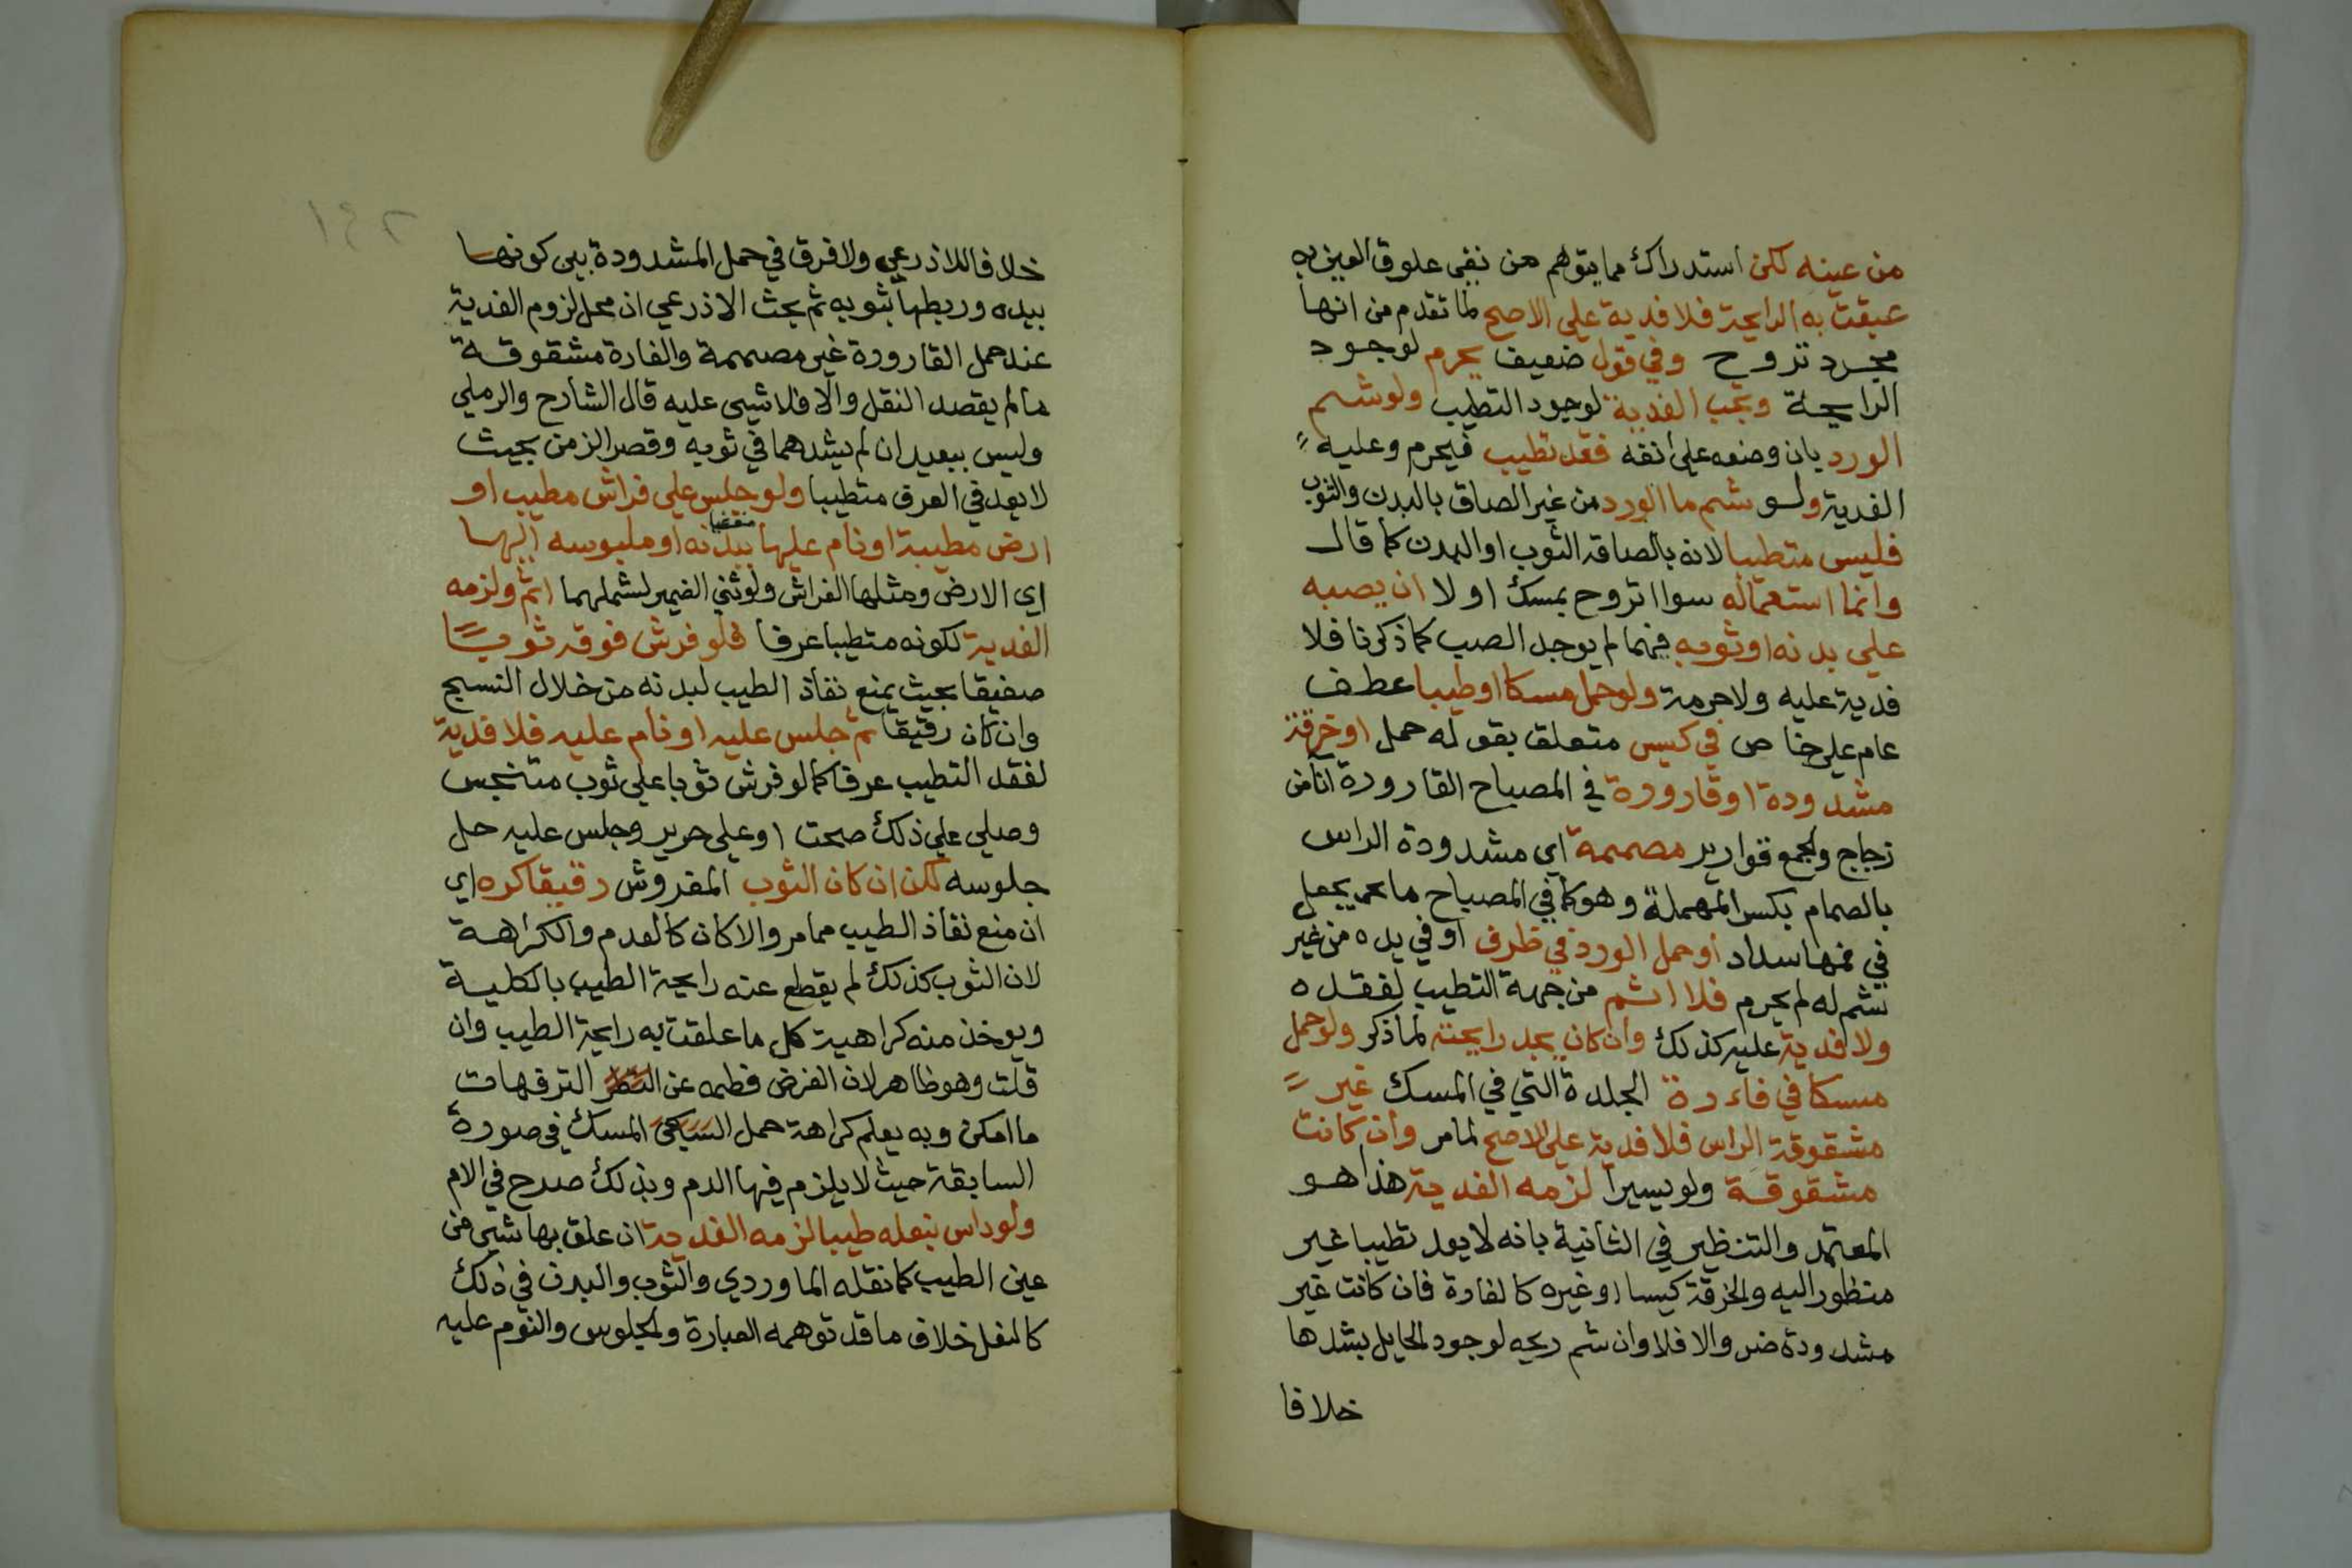 من عينه لكن استدراك مما يتوهم من نفى علوق العين به
عبقت به الرايحة فلا فدية علي الاصح لما تقدم من انها
مجرد تروح وفي قول ضعيف يحرم لوجود
الرايحة وتجب الفدية لوجود التطيب ولو شم
الورد بان وضعه على انفه فقد تطيب فيحرم وعليه
الفدية ولو شم ما الورد من غير الصاق بالبدن والثوب
فليس متطيبا لانه بالصاقه الثوب او البدن كما قال
وانما استعماله سواا تروح بمسك او لا ان يصبه
علي بدنه او ثوبه فيهما لم يوجد الصب كما ذكرنا فلا
فدية عليه ولا حرمة ولو حمل مسكا او طيبا عطف
عام على خاص في كيس متعلق بقوله حمل او خرقة
مشدودة او قارورة في المصباح القارورة انا من
زجاج والجمع قوارير مصممة اي مشدودة الراس
بالصمام بكسر المهملة وهو كما في المصباح ما يجعل
في فمها سداد او حمل الورد في ظرف او في يده من غير
شم له لم يحرم فلا اثم من جهة التطيب لفقده
ولا فدية عليه كذلك وان كان يجد رايحته لما ذكر ولو حمل
مسكا في فاءرة الجلدة التي في المسك غير
مشقوقة الراس فلا فدية على الاصح لما مر وان كانت
مشقوقة ولو يسيرا لزمه الفدية هذا هو
المعتمد والتنظير في الثانية بانه لا يعد تطيبا غير
منظور اليه والخرقة كيسا او غيره كالفارة فان كانت غير
مشدودة ضر والا فلا وان شم ريحه لوجود الحايل بشدها
خلافا
١٤٢
خلافا للاذرعي ولا فرق في حمل المشدودة بين كونها
بيده وربطها بثوبه ثم بحث الاذرعي ان محل لزوم الفدية
عند حمل القارورة غير مصممة والفارة مشقوقة
ما لم يقصد النقل والا فلا شيى عليه قال الشارح والرملي
وليس ببعيد ان لم يشدهما في ثوبه وقصر الزمن بحيث
لا يعد في العرف متطيبا ولو جلس على فراش مطيب او
ارض مطيبة او نام عليها مفضيا ببدنه او ملبوسه اليها
اي الارض ومثلها الفراش ولو ثني الضمير لشملهما اثم ولزمه
الفدية لكونه متطيبا عرفا فلو فرش فوقه ثوبا
صفيقا بحيث يمنع نفاذ الطيب لبدنه من خلال النسج
وان كان رقيقا ثم جلس عليه او نام عليه فلا فدية
لفقد التطيب عرفا كما لو فرش ثوبا علي ثوب متنجس
وصلي علي ذلك صحت او على حرير وجلس عليه حل
جلوسه لكن ان كان الثوب المفروش رقيقا كره اي
ان منع نفاذ الطيب مما مر والا كان كالعدم والكراهة
لان الثوب كذلك لم يقطع عنه رايحة الطيب بالكلية
ويوخذ منه كراهية كل ما علقت به رايحة الطيب وان
قلت وهو ظاهر لان الغرض فطمه عن الترفهات
ما امكن وبه يعلم كراهة حمل المسك في صورة
السابقة حيث لا يلزم فيها الدم وبذلك صرح في الام
ولو داس بنعله طيبا لزمه الفدية ان علق بها شيى من
عين الطيب كما نقله الماوردي والثوب والبدن في ذلك
كالنعل خلاف ما قد توهمه العبارة والجلوس والنوم عليه